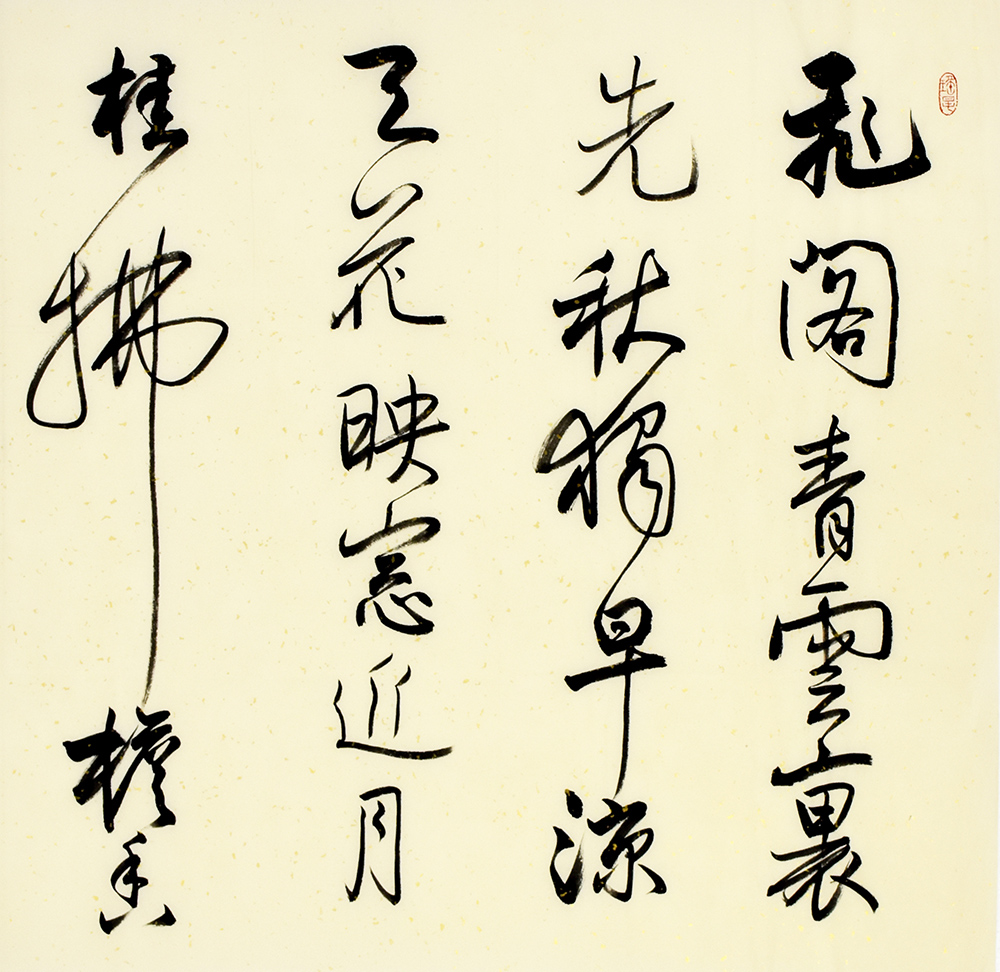 飛閣青雲裏
先秋獨早涼
天花映窓近月
桂拂檐香